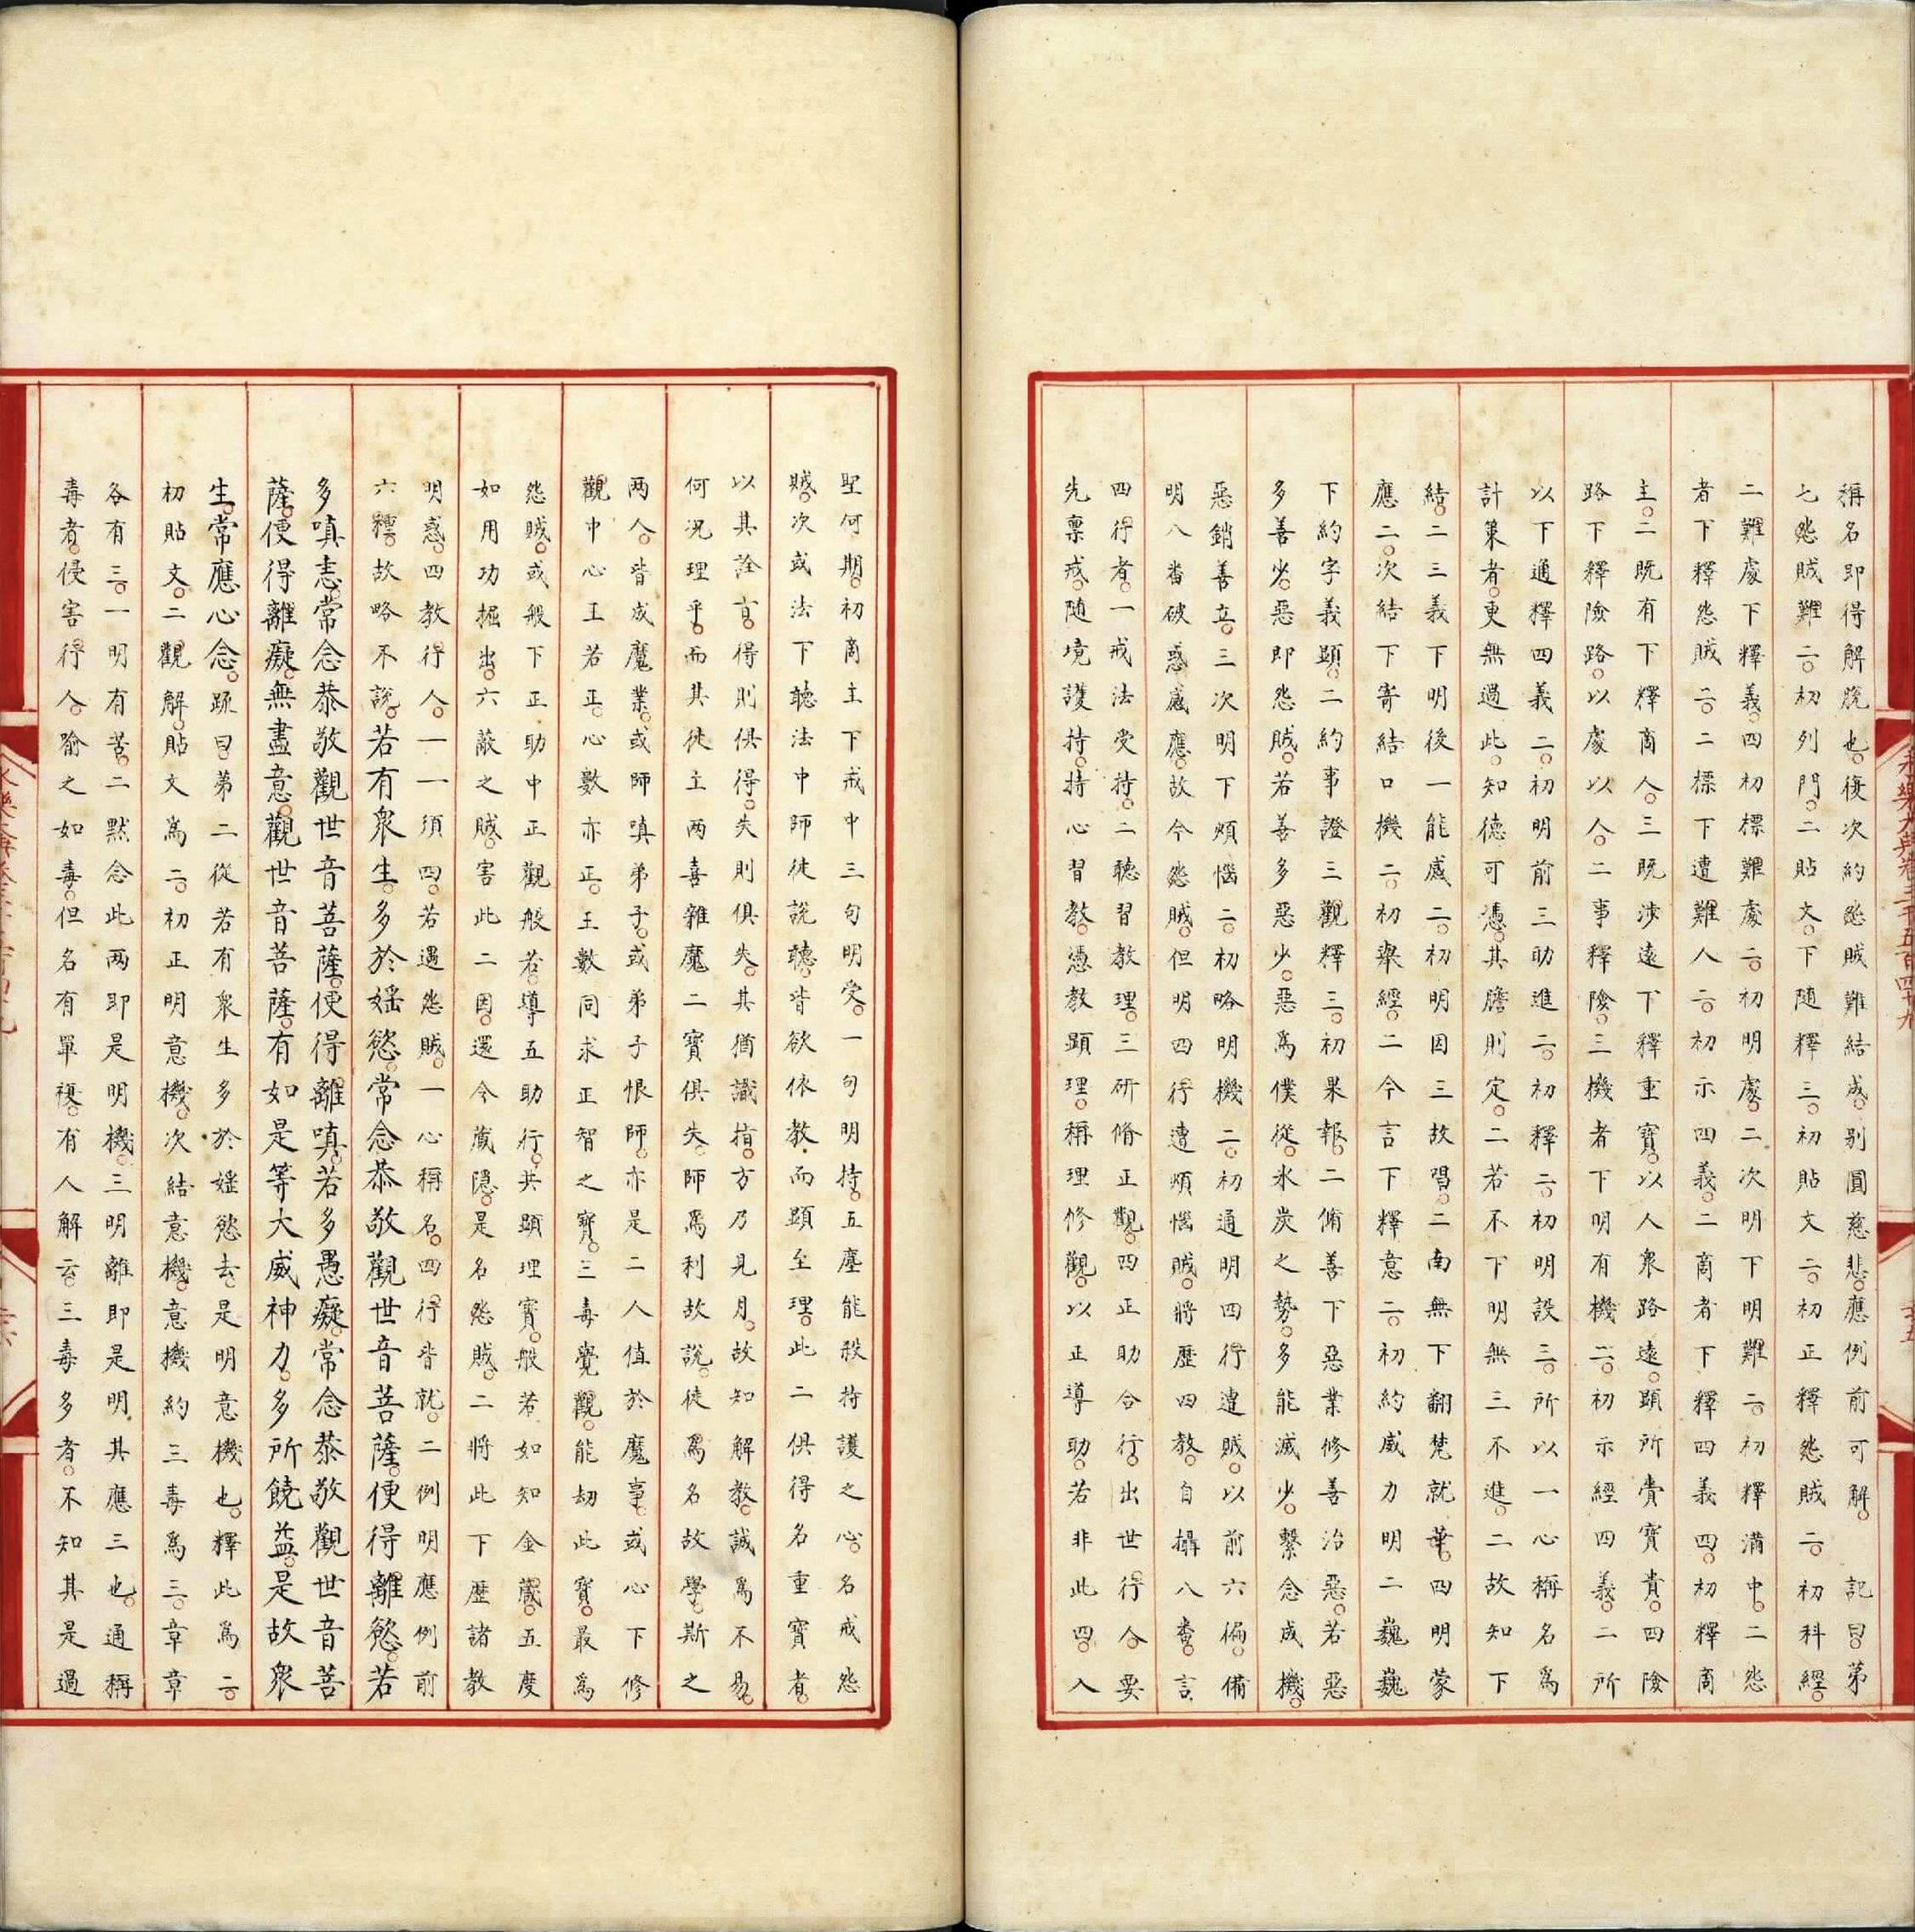 稱名即得解脫也。後次約怨賊難結成。別圓慈悲。應例前可解。　記曰。苐
七怨賊難二。初列門。二貼文。下隨釋三。初貼文二。初正釋怨賊二。初科經。
二難處下釋義。四初標難處二。初明處。二次明下明難二。初釋滿中。二怨
者下釋怨賊二。二標下遭難人二。初示四義。二商者下釋四義四。初釋商
主。二既有下釋商人。三既涉遠下釋重寶。以人衆路遠。顯所賷寶貴。四險
路下釋險路。以處以人。二事釋險。三機者下明有機二。初示經四義。二所
以下通釋四義二。初明前三助進二。初釋二。初明設三。所以一心稱名爲
計策者。更無過此。知德可憑。其膽則定。二若不下明無三不進。二故知下
結。二三義下明後一能感二。初明因三故唱。二南無下翻梵就華。四明蒙
應二。次結下寄結口機二。初舉經。二今言下釋意二。初約威力明二巍巍
下約字義顯。二約事證三觀釋三。初果報。二脩善下惡業修善治惡。若惡
多善少。惡即怨賊。若善多惡少。惡爲僕從。氷炭之勢。多能滅少。繫念成機。
惡銷善立。三次明下煩惱二。初略明機二。初通明四行遭賊。以前六徧備
明八畨破惑感應。故今怨賊。但明四行遭煩惱賊。將歷四教。自攝八畨。言
四行者。一戒法受持。二聽習教理。三研脩正觀。四正助合行。出世行人要
先禀戒。随境護持。持心習教。憑教顯理。稱理修觀。以正導助。若非此四。入
聖何期。初商主下戒中三句明受。一句明持。五塵能殺持護之心。名戒怨
賊。次或法下聽法中師徒說聽。皆欲依教而顯至理。此二俱得名重寶者。
以其詮㫖。得則俱得。失則俱失。其猶識指。方乃見月。故知解教。誠爲不易。
何况理乎。而其徒主兩喜雜魔二寶俱失。師爲利故說。徒爲名故學。斯之
两人。皆成魔業。或師嗔弟子。或弟子恨師。亦是二人值於魔事。或心下修
觀中心王若正。心數亦正。王數同求正智之寶。三毒覺觀。能刼此寶。最爲
怨賊。或般下正助中正觀般若。導五助行。共顯理寶。般若如知金藏。五度
如用功掘出。六蔽之賊。害此二因。還令藏隱。是名怨賊。二將此下歷諸教
明惑。四教行人。一一須四。若遇怨賊。一心稱名。四行皆就。二例明應例前
六釋。故略不說。若有衆生。多於婬慾。常念恭敬觀世音菩薩。便得離慾。若
多嗔恚。常念恭敬觀世音菩薩。便得離嗔。若多愚癡。常念恭敬觀世音菩
薩。便得離癡。無盡意。觀世音菩薩。有如是等大威神力。多所饒益。是故衆
生。常應心念。疏曰。苐二從若有衆生多於婬慾去。是明意機也。釋此爲二。
初貼文。二觀解。貼文爲二。初正明意機。次結意機。意機約三毒爲三。章章
各有三。一明有苦。二黙念此两即是明機。三明離即是明其應三也。通稱
毒者。侵害行人。喻之如毒。但名有單複。有人解云。三毒多者。不知其是過